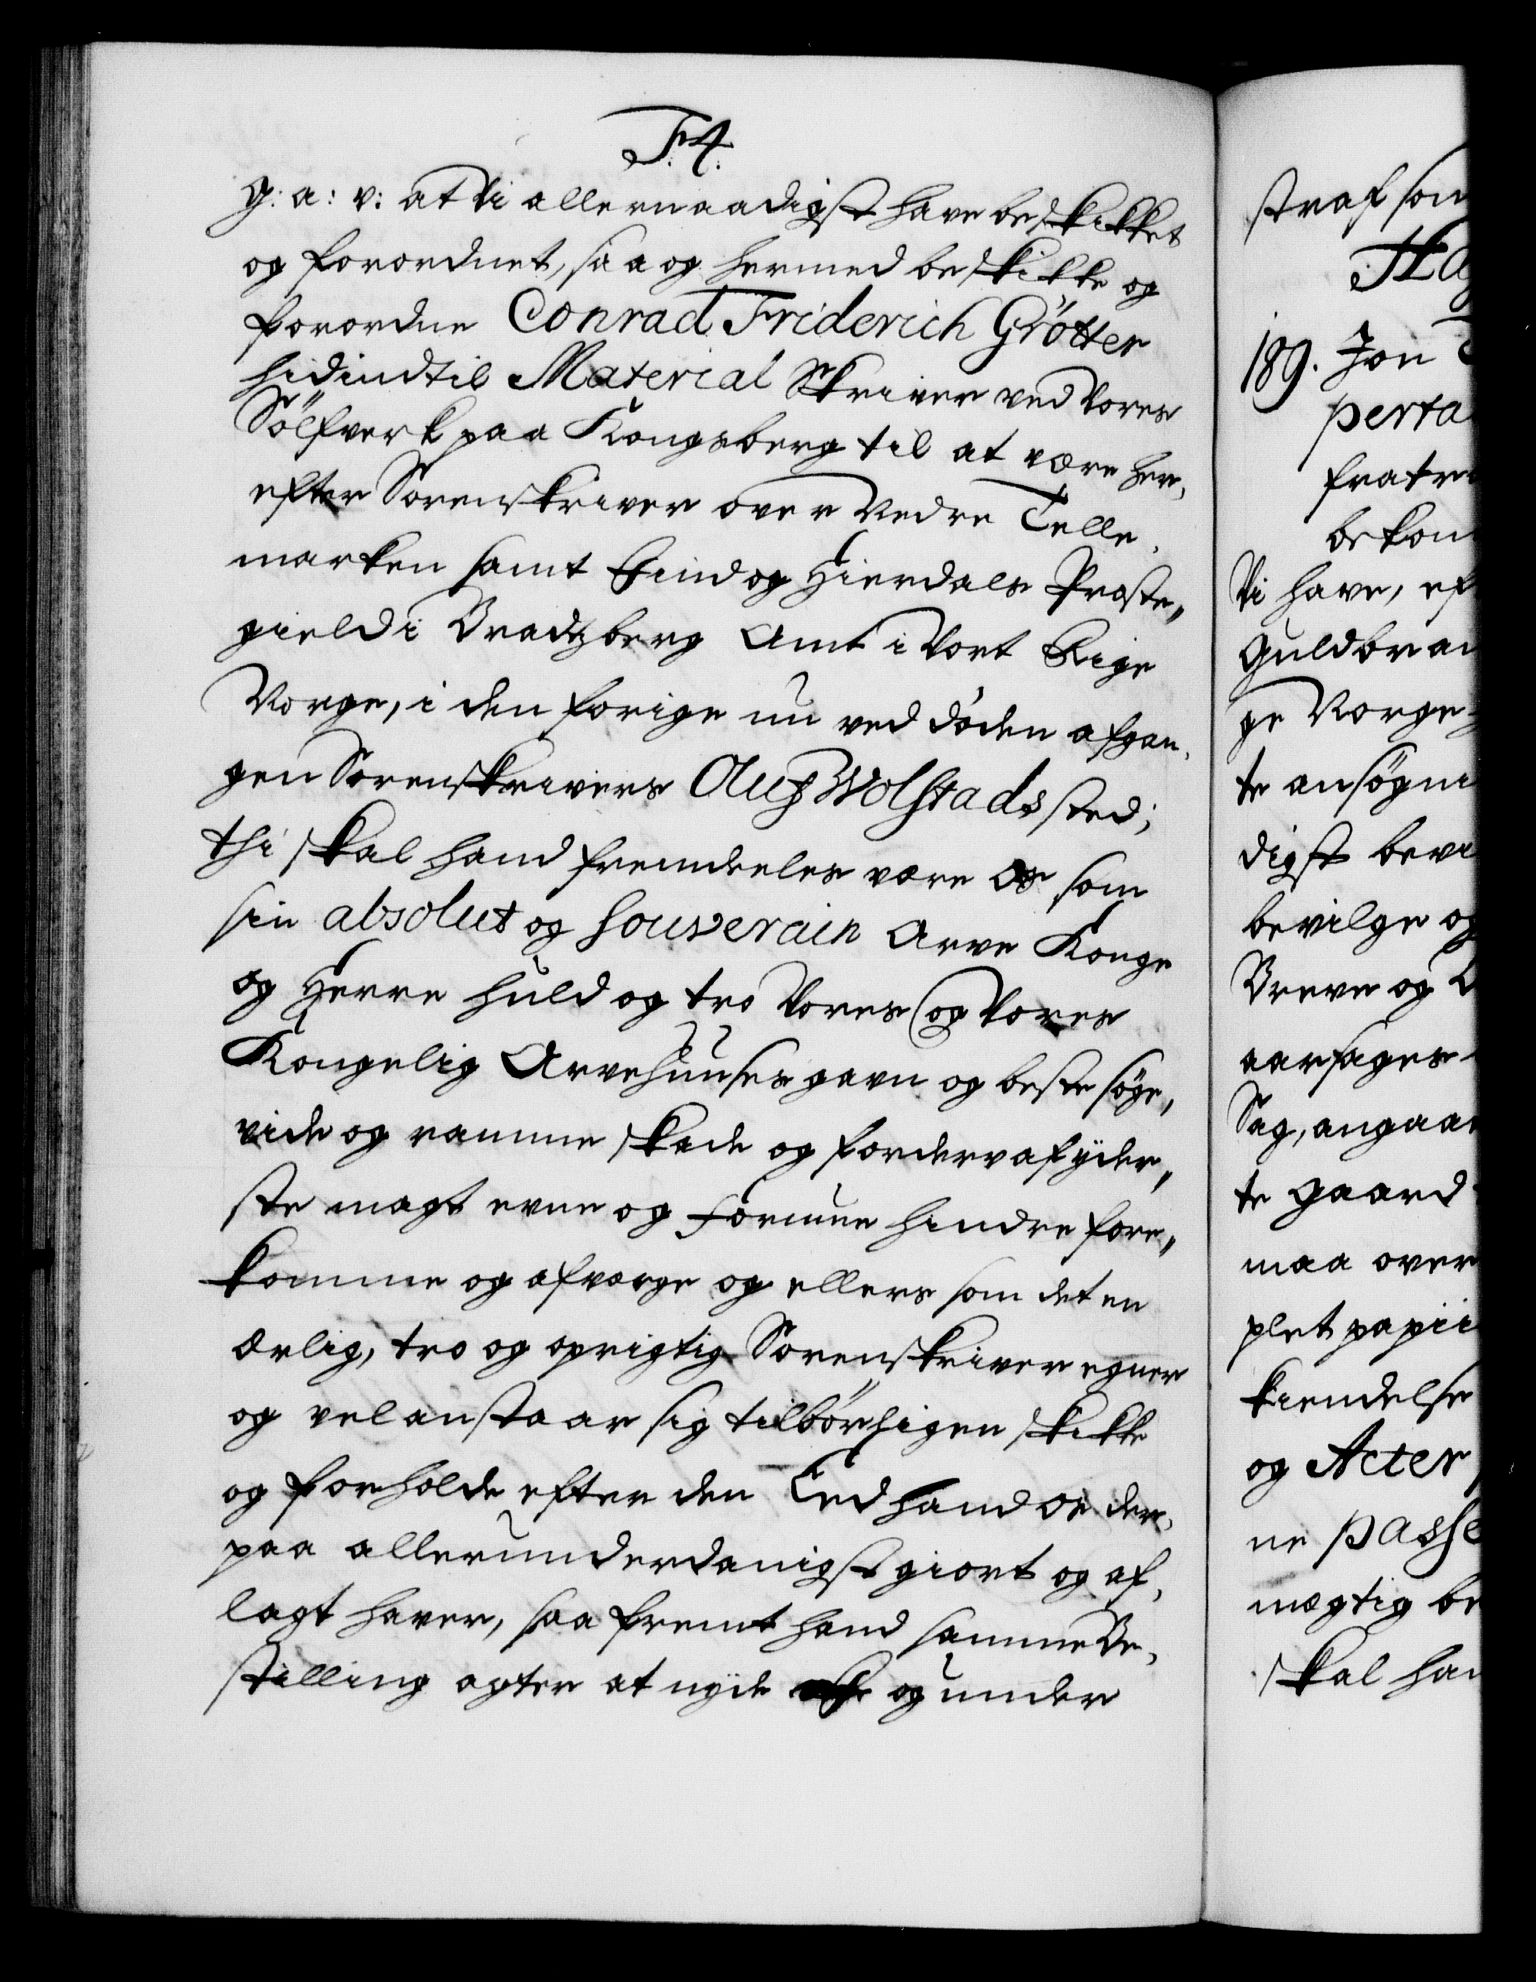 F. 4.
g: a: v: at Vi allernaadigst have beskikket
og forordnet, saa og hermed beskikke og
forordne Conrad Friderich Grötter
hidindtil Material Skriver ved Vores
Sölfverk paa Kongsberg til at være her,
efter Sorenskriver over Nedre Telle,
marken samt Hind og Hierdals Præste„
gield i Bradtzberg Amt i Vort Rige
Norge, i den forige nu ved döden afgan,
gen Sorenskrivers Oluf Wolstads sted;
thi skal hand fremdeeles være Os som
sin absolut og souverain Arve Konge
og Herre huld og tro Vores og Vores
Kongelig Arvehuuses gavn og beste söge,
vide og ramme skade og forderv af yder„
ste magt evne og Formue hindre fore„
komme og afværge og ellers som det en
ærlig, tro og oprigtig Sorenskriver egner
og vel anstaar sig tilbörligen skikke
og forholde efter den Eed hand Os der,
paa allerunderdanigst giort og af,
lagt haver, saa fremt hand samme Be,
stilling agter at nyde og under
straf som
189. Jon
perta
fratr
bekom
Vi have, ef
Guldbran
ge Norge
te ansögni
digst bevi
bevilge og
Breve og
aarsages
Sag, angaae
te gaard
maa over
plet papii
kiendelse
og Acter
ne passe
mægtig be
skal han